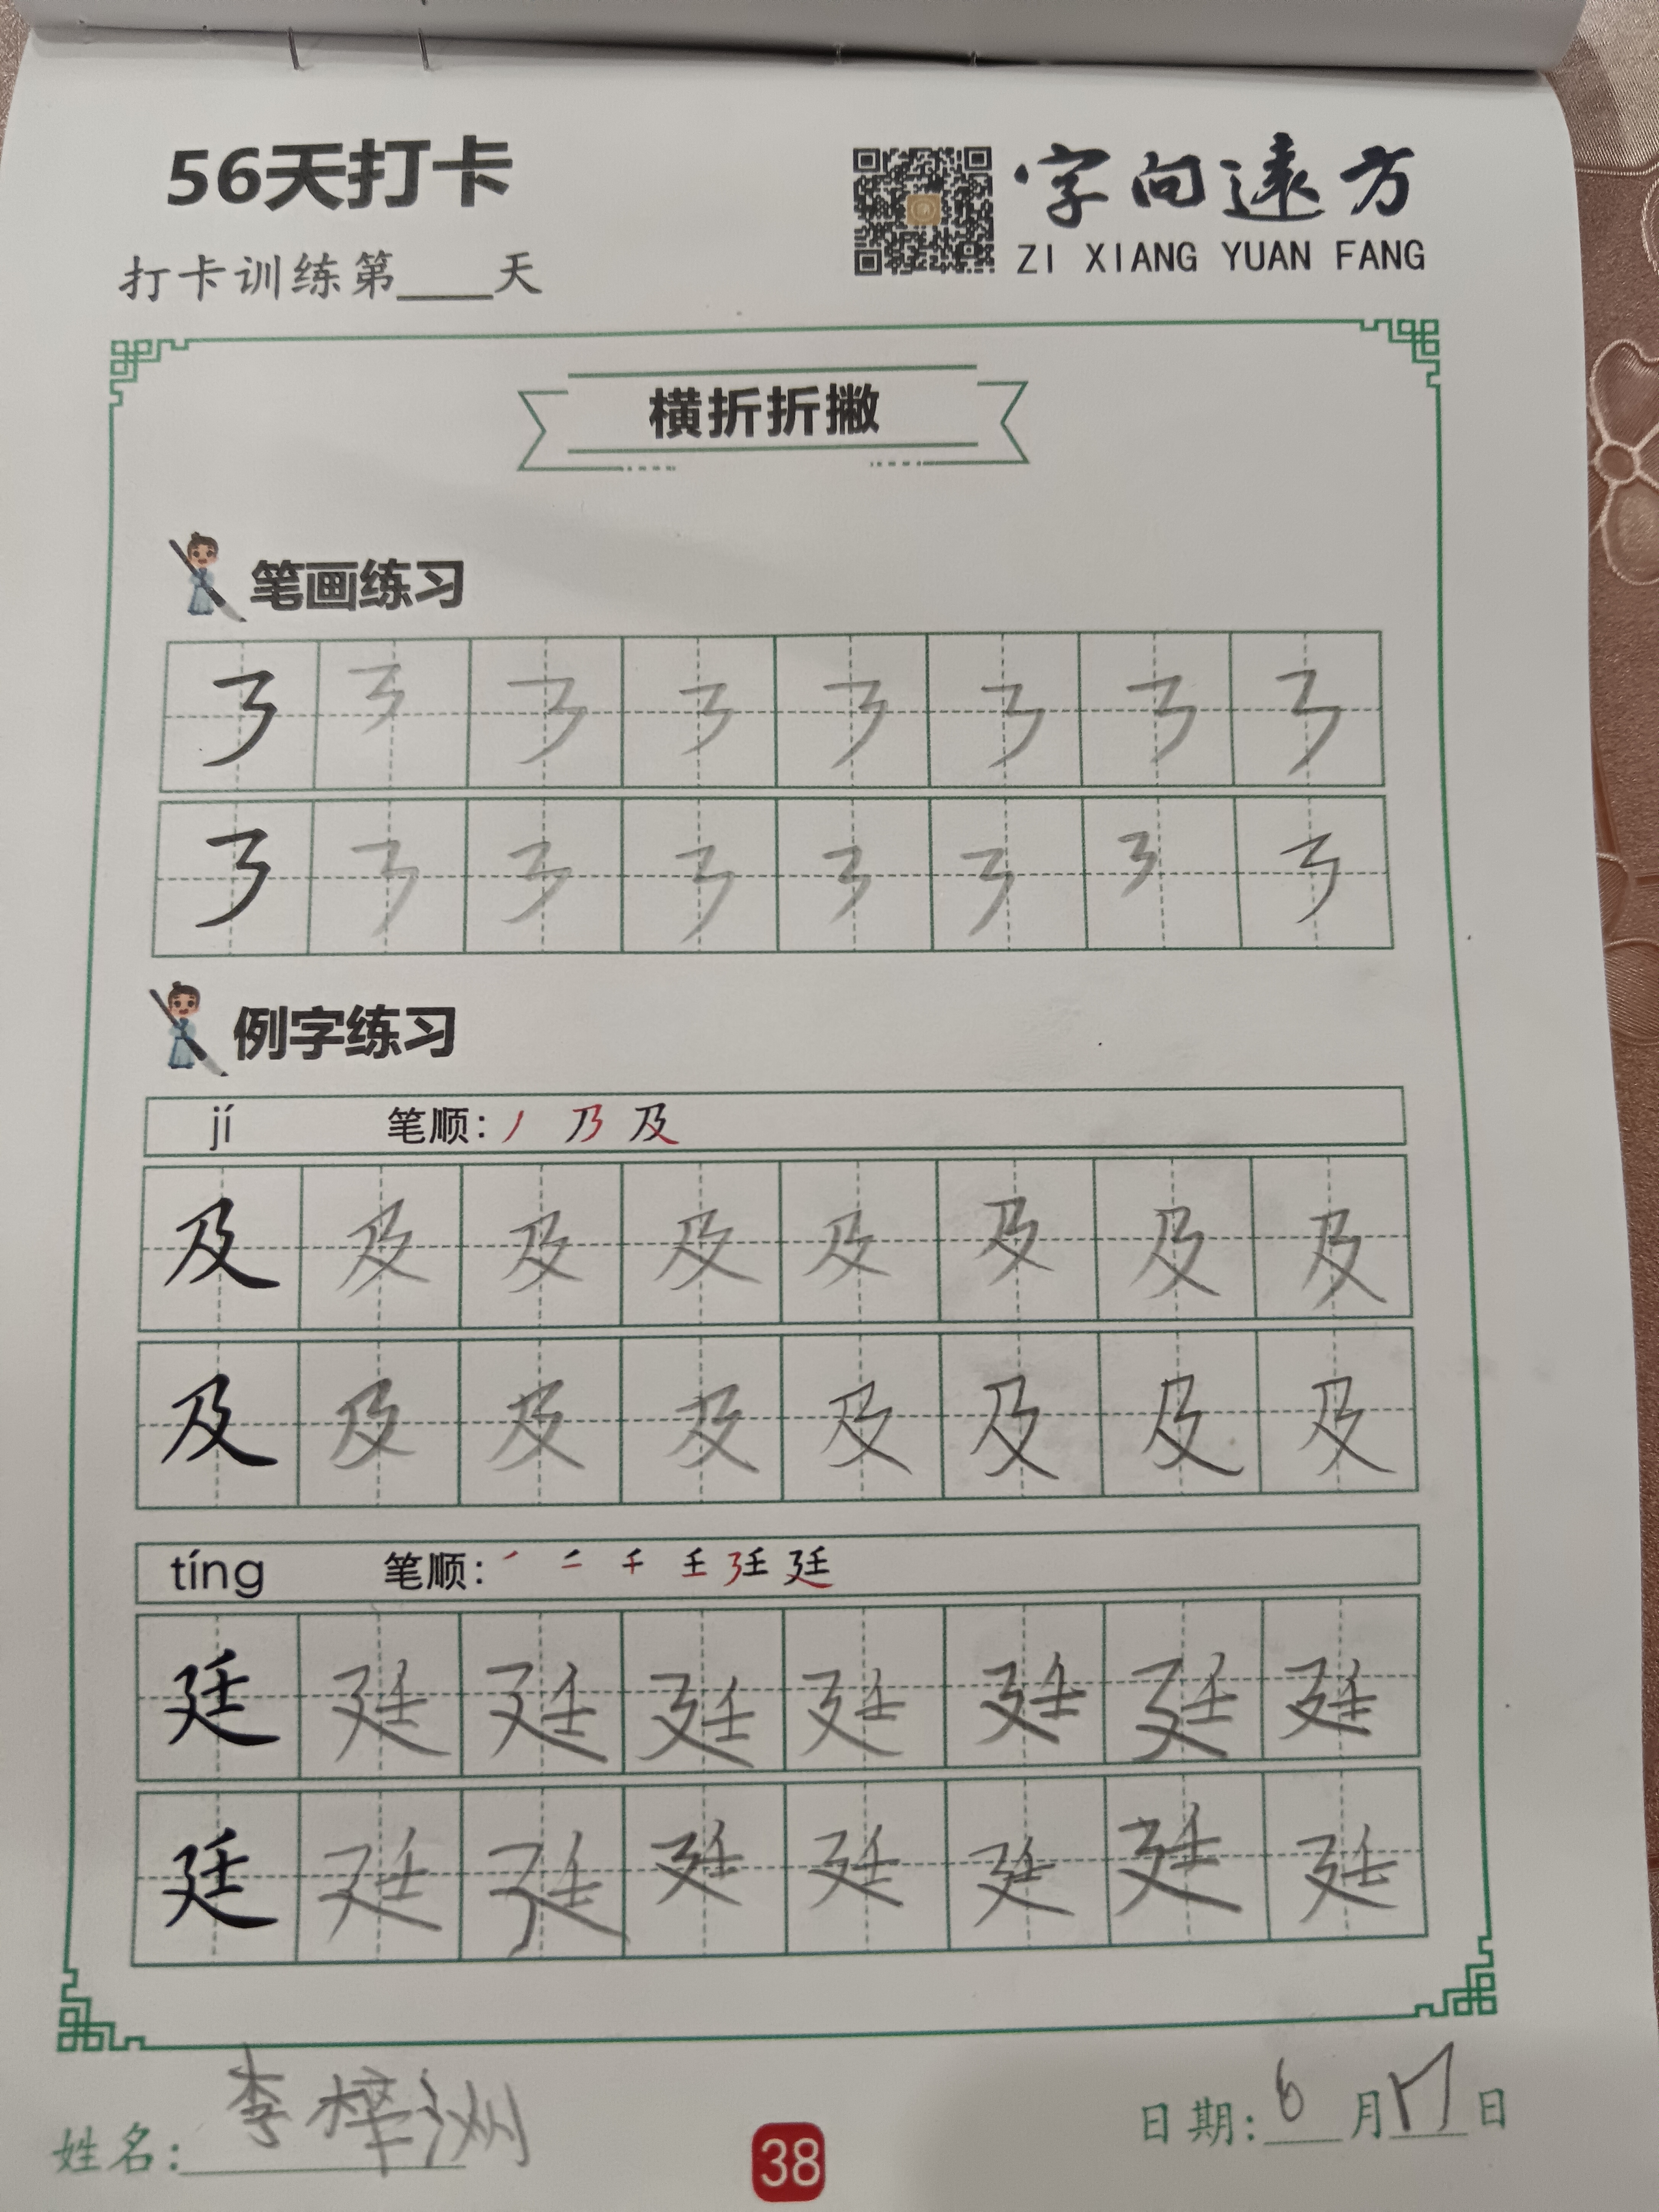 56天打卡
字向遠方
ZI XIANG YUAN FANG
打卡训练第____天
横折折撇
笔画练习
㇋ ㇋ ㇋ ㇋ ㇋ ㇋ ㇋ ㇋
㇋ ㇋ ㇋ ㇋ ㇋ ㇋ ㇋ ㇋
例字练习
jí 笔顺: 丿 乃 及
及 及 及 及 及 及 及 及
及 及 及 及 及 及 及 及
tíng 笔顺: 廷
廷 廷 廷 廷 廷 廷 廷 廷
廷 廷 廷 廷 廷 廷 廷 廷
姓名: 李梓洲
日期: 6月17日
38